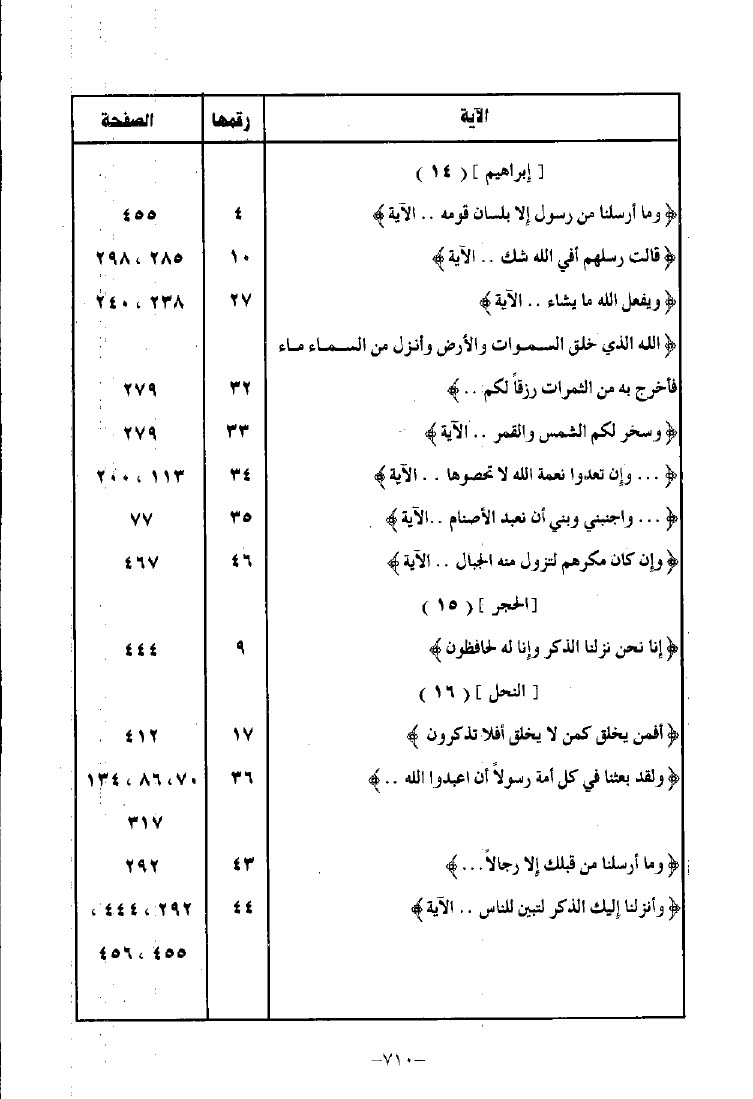 الآية رقمها الصفحة
[ إبراهيم ] ( ١٤ )
﴿ وما أرسلنا من رسول إلا بلسان قومه .. الآية ﴾ ٤ ٤٥٥
﴿ قالت رسلهم أفي الله شك .. الآية ﴾ ١٠ ٢٨٥ ، ٢٩٨
﴿ ويفعل الله ما يشاء .. الآية ﴾ ٢٧ ٢٣٨ ، ٢٤٠
﴿ الله الذي خلق السموات والأرض وأنزل من السماء ماء
فأخرج به من الثمرات رزقاً لكم .. ﴾ ٣٢ ٢٧٩
﴿ وسخر لكم الشمس والقمر .. الآية ﴾ ٣٣ ٢٧٩
﴿ ... وإن تعدوا نعمة الله لا تحصوها .. الآية ﴾ ٣٤ ١١٣ ، ٢٠٠
﴿ ... واجنبني وبني أن نعبد الأصنام .. الآية ﴾ ٣٥ ٧٧
﴿ وإن كان مكرهم لتزول منه الجبال .. الآية ﴾ ٤٦ ٤٦٧
[ الحجر ] ( ١٥ )
﴿ إنا نحن نزلنا الذكر وإنا له لحافظون ﴾ ٩ ٤٤٤
[ النحل ] ( ١٦ )
﴿ أفمن يخلق كمن لا يخلق أفلا تذكرون ﴾ ١٧ ٤١٢
﴿ ولقد بعثنا في كل أمة رسولاً أن اعبدوا الله .. ﴾ ٣٦ ٧٠ ، ٨٦ ، ١٣٤
٣١٧
﴿ وما أرسلنا من قبلك إلا رجالاً ... ﴾ ٤٣ ٢٩٢
﴿ وأنزلنا إليك الذكر لتبين للناس .. الآية ﴾ ٤٤ ٢٩٢ ، ٤٤٤ ،
٤٥٥ ، ٤٥٦
–٧١٠–